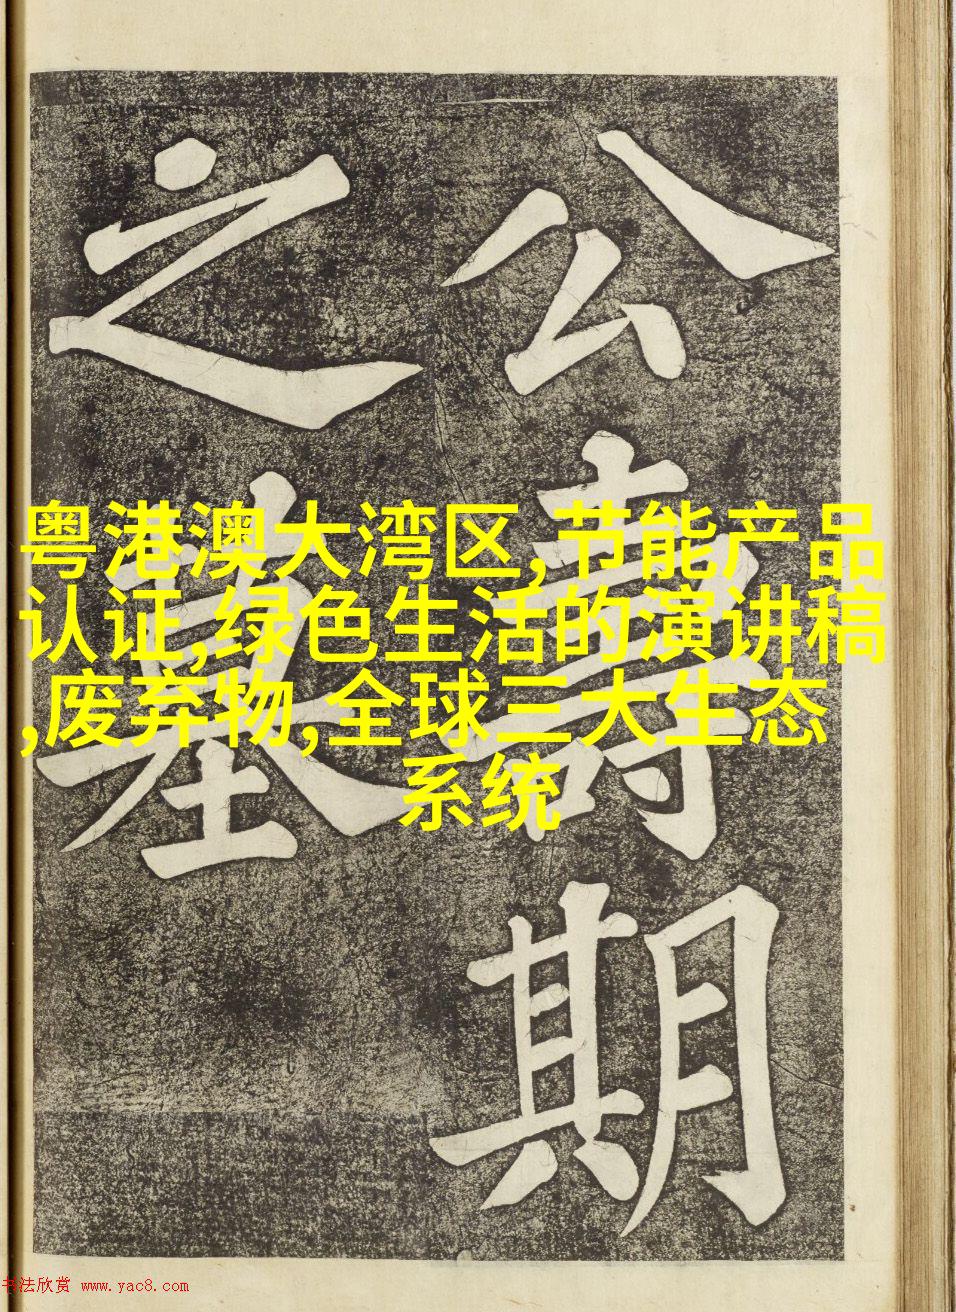 公壽期
之墓
粤港澳大湾区,节能产品
认证,绿色生活的演讲稿
,废弃物,全球三大生态
系统
书法欣赏 www.yac8.com